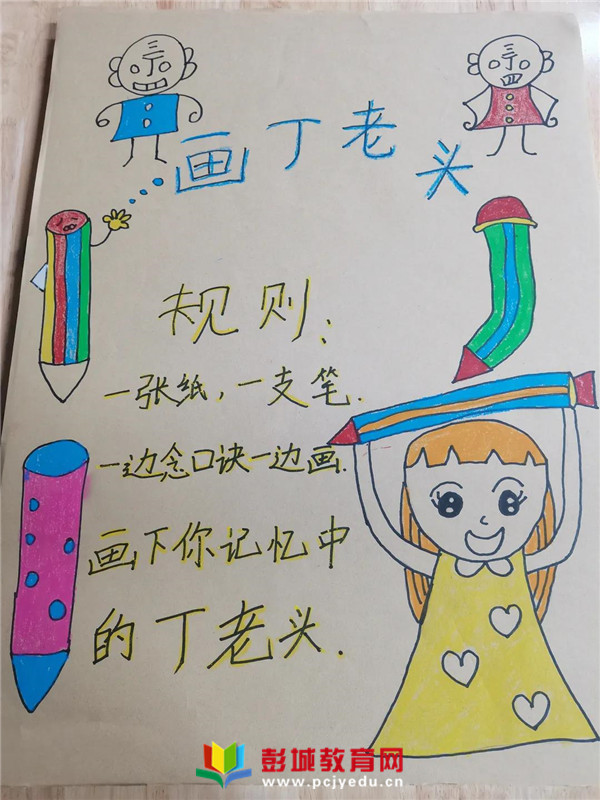 画丁老头
规则：
一张纸，一支笔.
一边念口诀一边画.
画下你记忆中
的丁老头.
彭城教育网
www.pcjyedu.cn